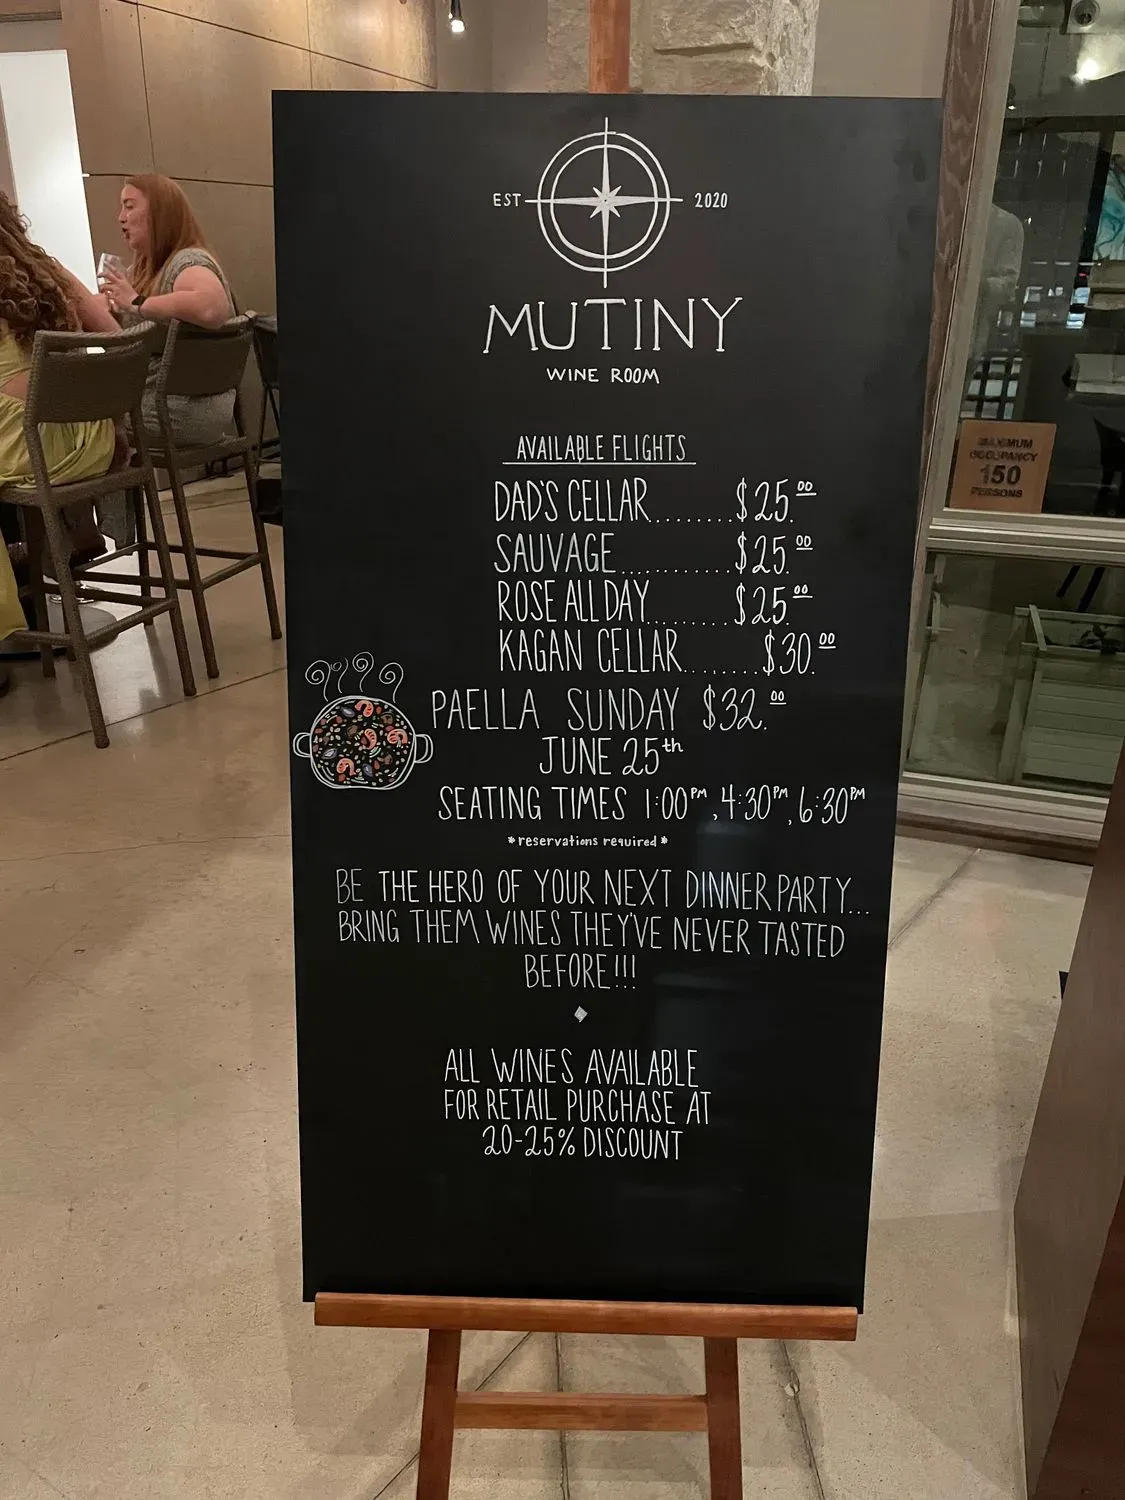 EST 2020
MUTINY
WINE ROOM
AVAILABLE FLIGHTS
DAD'S CELLAR.........$25.00
SAUVAGE............$25.00
ROSE ALL DAY.........$25.00
KAGAN CELLAR........$30.00
PAELLA SUNDAY $32.00
JUNE 25th
SEATING TIMES 1:00PM, 4:30PM, 6:30PM
*reservations required*
BE THE HERO OF YOUR NEXT DINNER PARTY...
BRING THEM WINES THEY'VE NEVER TASTED
BEFORE!!!
ALL WINES AVAILABLE
FOR RETAIL PURCHASE AT
20-25% DISCOUNT
MAXIMUM
OCCUPANCY
150
PERSONS